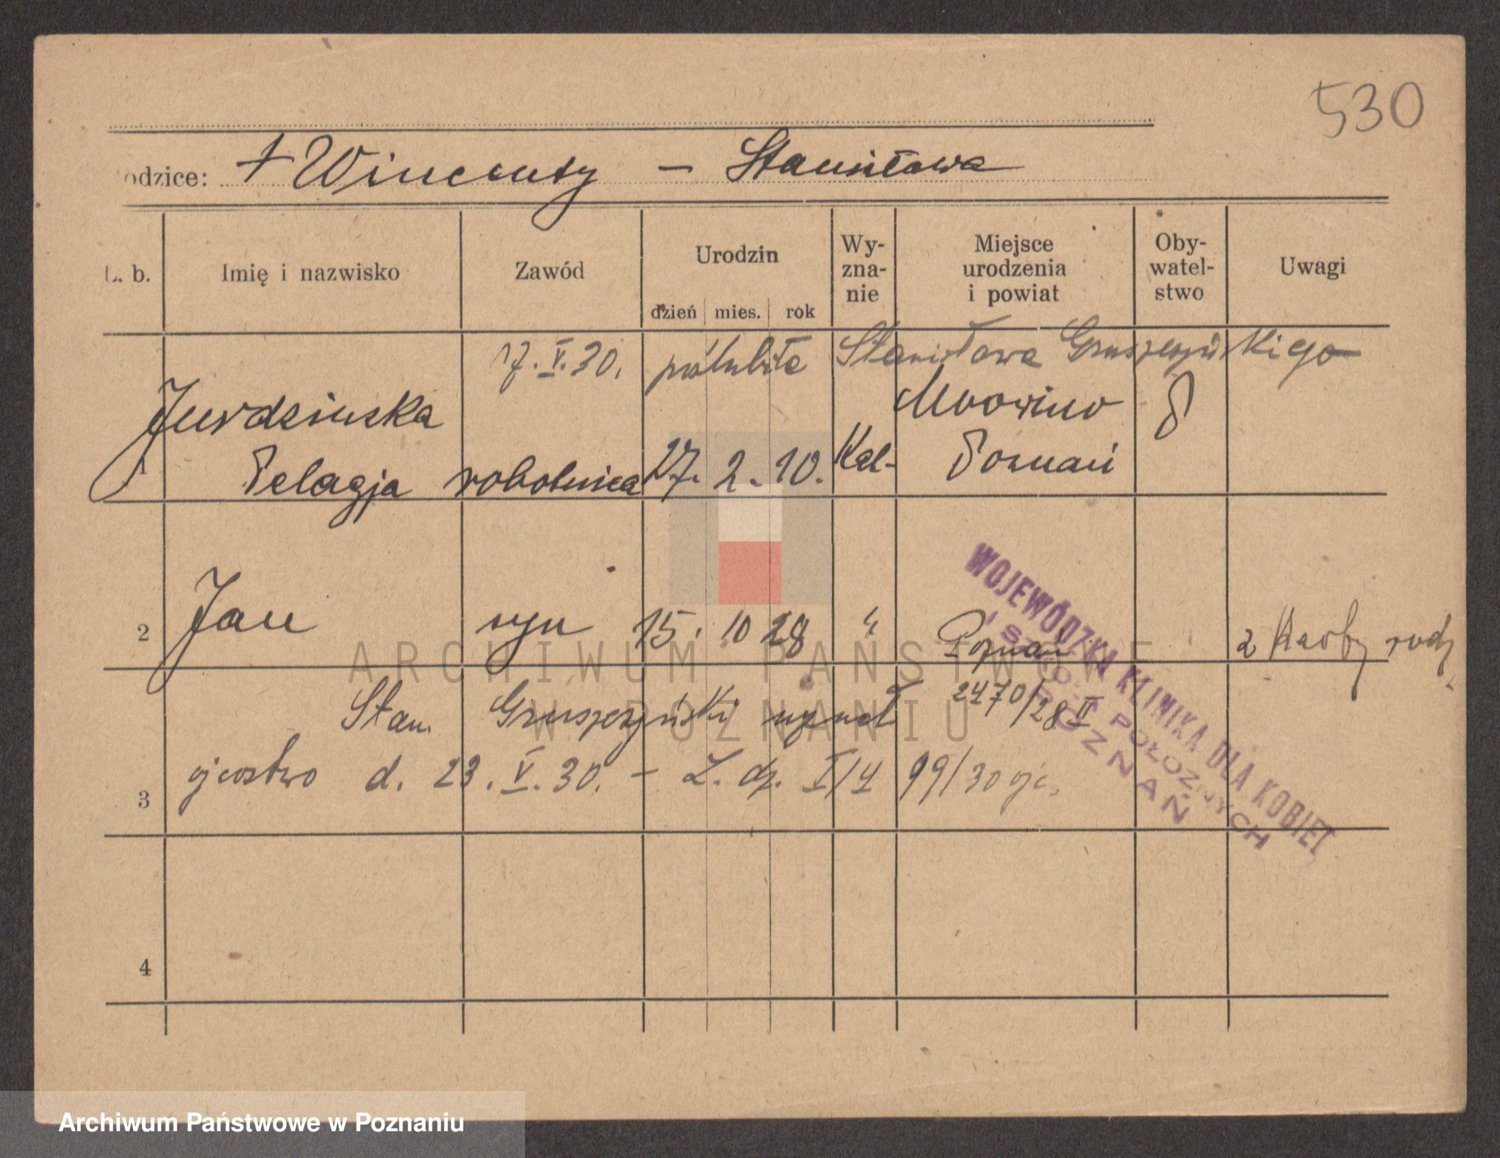 530
odzice: + Wincenty - Stanisława
L. b. Imię i nazwisko Zawód Urodzin dzień mies. rok Wy-zna-nie Miejsce urodzenia i powiat Oby-watel-stwo Uwagi
17. V. 30. poślubiła Stanisława Gruszczyńskiego
Jurdzinska Mrowino
1 Pelagja robotnica 27. 2. 10. Kat- Poznań
2 Jan syn 15. 10 28 " Poznań 2 Kaoby rodz.
Stan. Gruszczyński uznał 2470/28 II
3 ojcostwo d. 23. V. 30. - L. dz. I/4 99/30 ojc.
4
WOJEWÓDZKA KLINIKA DLA KOBIET
I SZKOŁA POŁOŻNYCH
POZNAŃ
ARCHIWUM PAŃSTWOWE
W POZNANIU
Archiwum Państwowe w Poznaniu